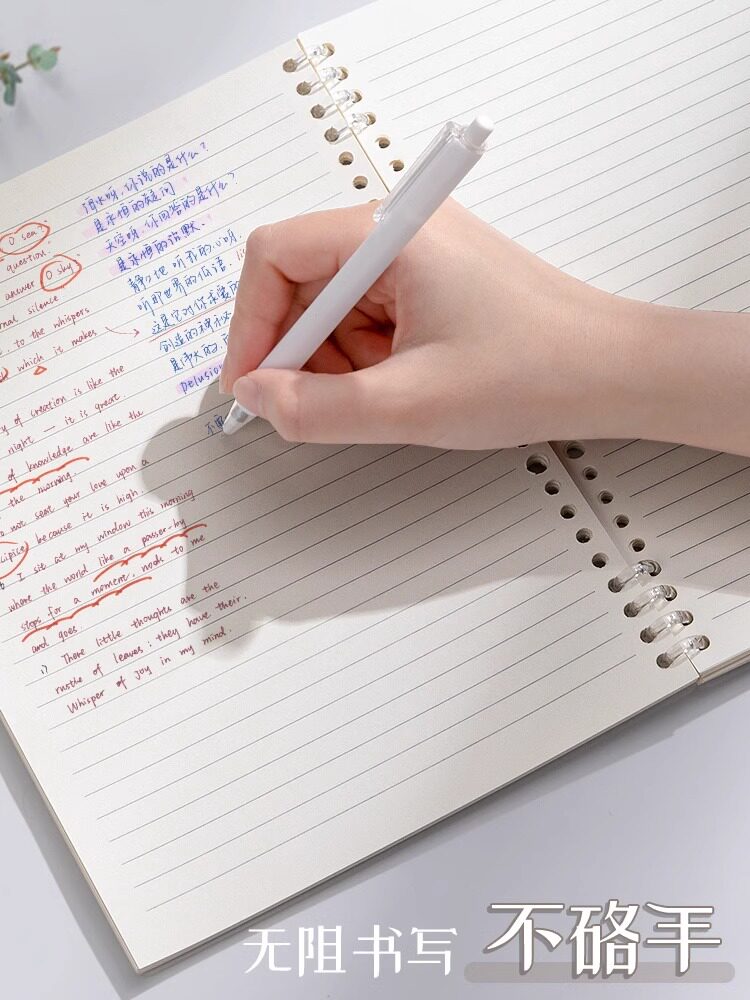 O sea?
question.
answer O sky
nal silence
to the whispers
which is makes
y of creation is like the
night — it is great.
of knowledge are like the
the morning.
not seat your love upon a
cipice because it is high.
I sit at my window this morning
where the world like a passer-by
stops for a moment, nods to me
and goes.
There little thoughts are the
rustle of leaves; they have their
Whisper of joy in my mind.
海水呀，你说的是什么？
是永恒的疑问
天空呀，你回答的是什么？
是永恒的沉默。
静静地听我的心呀
听那世界的低语
这是它对你求爱的
创造的神秘
是伟大的
Delusion
不
无阻书写 不硌手